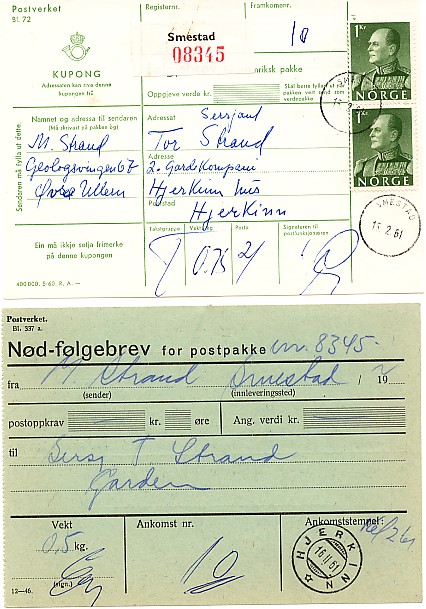 Postverket
Bl. 72
Registernr.
Framkomenr.
Smestad
08345
10
1Kr
NORGE
KUPONG
Adressaten kan rive denne
kupongen frå
noriksk pakke
Oppgjeve verde kr.
Skal berre fyllast ut når
pakken vert send som
verdesakke
SMESTAD
1Kr
NORGE
Sendaren må fylla ut dette.
Namnet og adressa til sendaren
(Må skrivast på pakken òg)
M. Strand
Geologsvingen 6 b
Øvre Ullern
Adressat
Sersjant
Tor Strand
Adresse
2. Gardskompani
Hjerkinn
Poststad
Hjerkinn
SMESTAD
2.61
Ein må ikkje setja frimerke
på denne kupongen
Takstgruppe
Vekt kg
Porto
Signaturen til
postfunksjonæren
0.75
2/
400 000. 5-60. R. A. —
Postverket.
Bl. 337 a.
Nød-følgebrev for postpakke nr. 8345
fra M. Strand Smestad / 19
(sender) (innleveringssted)
postoppkrav kr. øre Ang. verdi kr.
til Sersj T Strand
Garden
Vekt
0,5 kg.
(sign.)
Ankomst nr.
10
Ankomststempel:
16/2 61
HJERKINN
16 II 61
12—46.